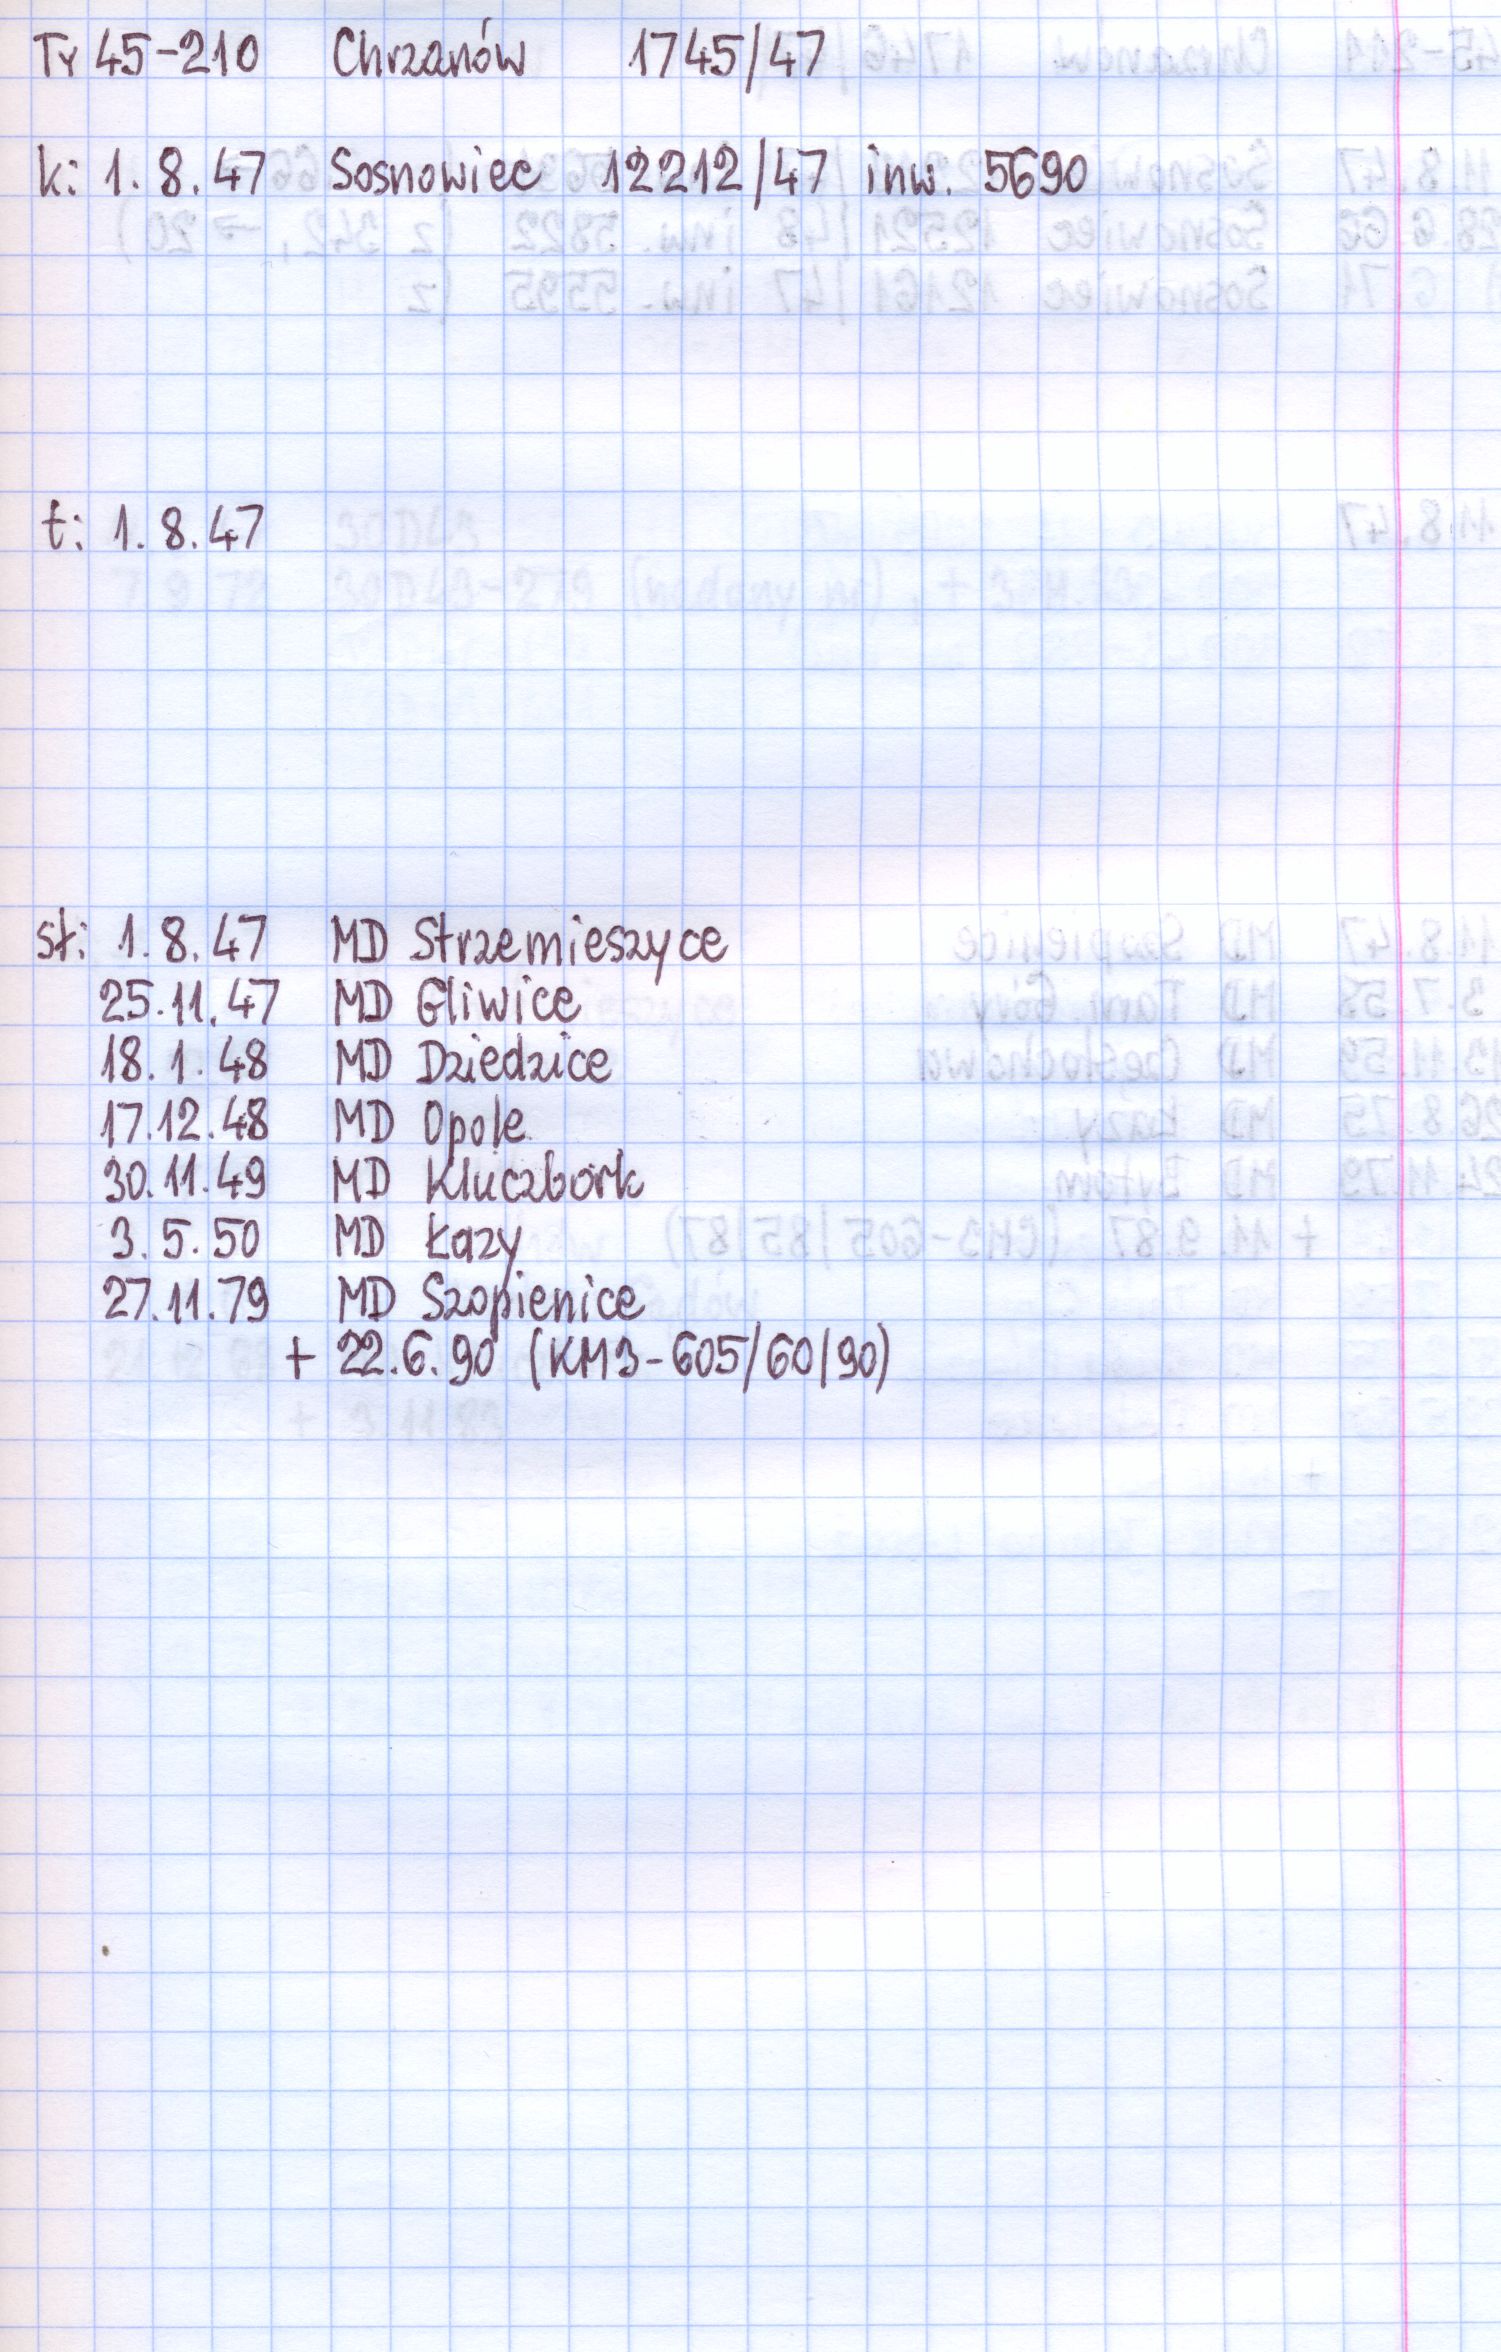 Ty 45-210 Chrzanów 1745/47
k: 1.8.47 Sosnowiec 12212/47 inw. 5690
t: 1.8.47
st: 1.8.47 MD Strzemieszyce
25.11.47 MD Gliwice
18.1.48 MD Dziedzice
17.12.48 MD Opole
30.11.49 MD Kluczbork
3.5.50 MD Łazy
27.11.79 MD Szopienice
+ 22.6.90 (KM3-605/60/90)